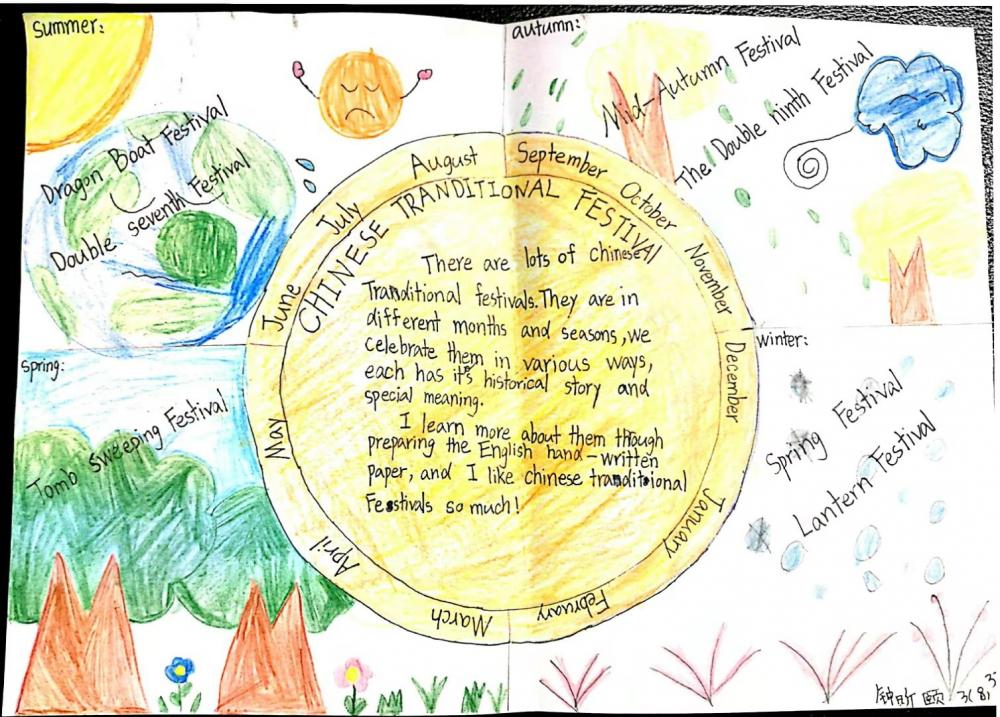 summer:
Dragon Boat Festival
Double seventh Festival
autumn:
Mid-Autumn Festival
The Double ninth Festival
spring:
Tomb sweeping Festival
winter:
Spring Festival
Lantern Festival
January
February
March
April
May
June
July
August
September
October
November
December
CHINESE TRANDITIONAL FESTIVAL
There are lots of chinese
Tranditional festivals.They are in
different months and seasons,we
celebrate them in various ways,
each has it's historical story and
special meaning.
I learn more about them though
preparing the English hand-written
paper, and I like chinese tranditional
Festivals so much!
钟昕颐